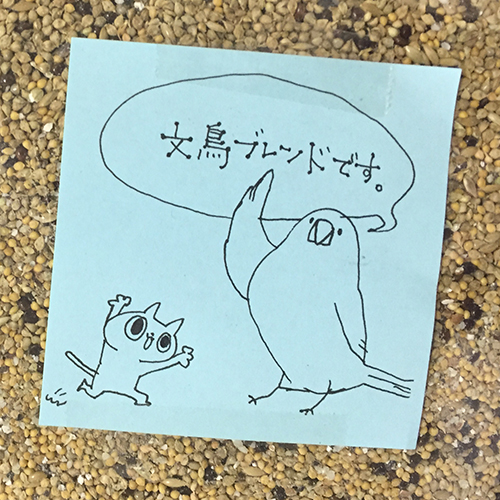 文鳥ブレンドです。